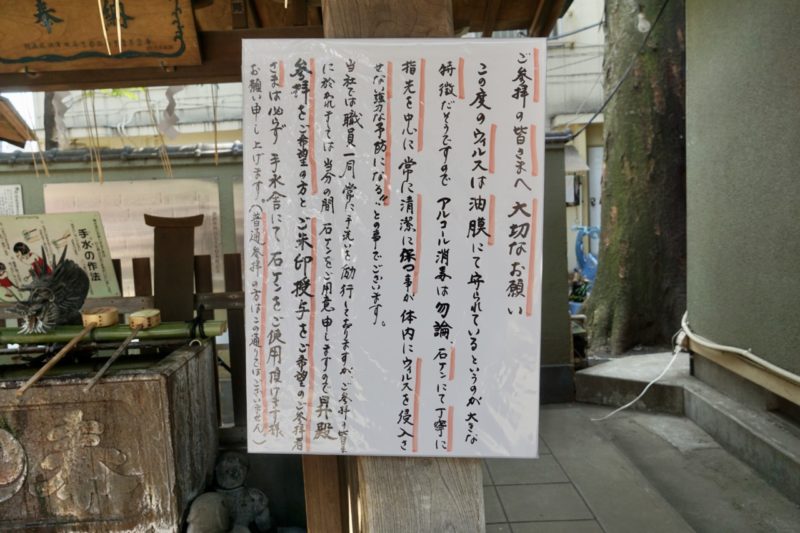 ご参拝の皆さまへ 大切なお願い
この度のウィルスは油膜にて守られているというのが大きな
特徴だそうですので アルコール消毒は勿論、石ケンにて丁寧に
指先を中心に常に清潔に保つ事が体内にウィルスを侵入さ
せな強力な予防になる‼との事でございます。
当社では職員一同、常に手洗いを励行しておりますが、ご参拝の皆様
に於かれましては 当分の間 石ケンをご用意申しますので昇殿
参拝をご希望の方とご朱印授与をご希望のご参拝者
さまは必ず手水舎にて石ケンをご使用頂けます様
お願い申し上げます。(普通参拝の方はこの通りではございません)
手水の作法
奉
奉